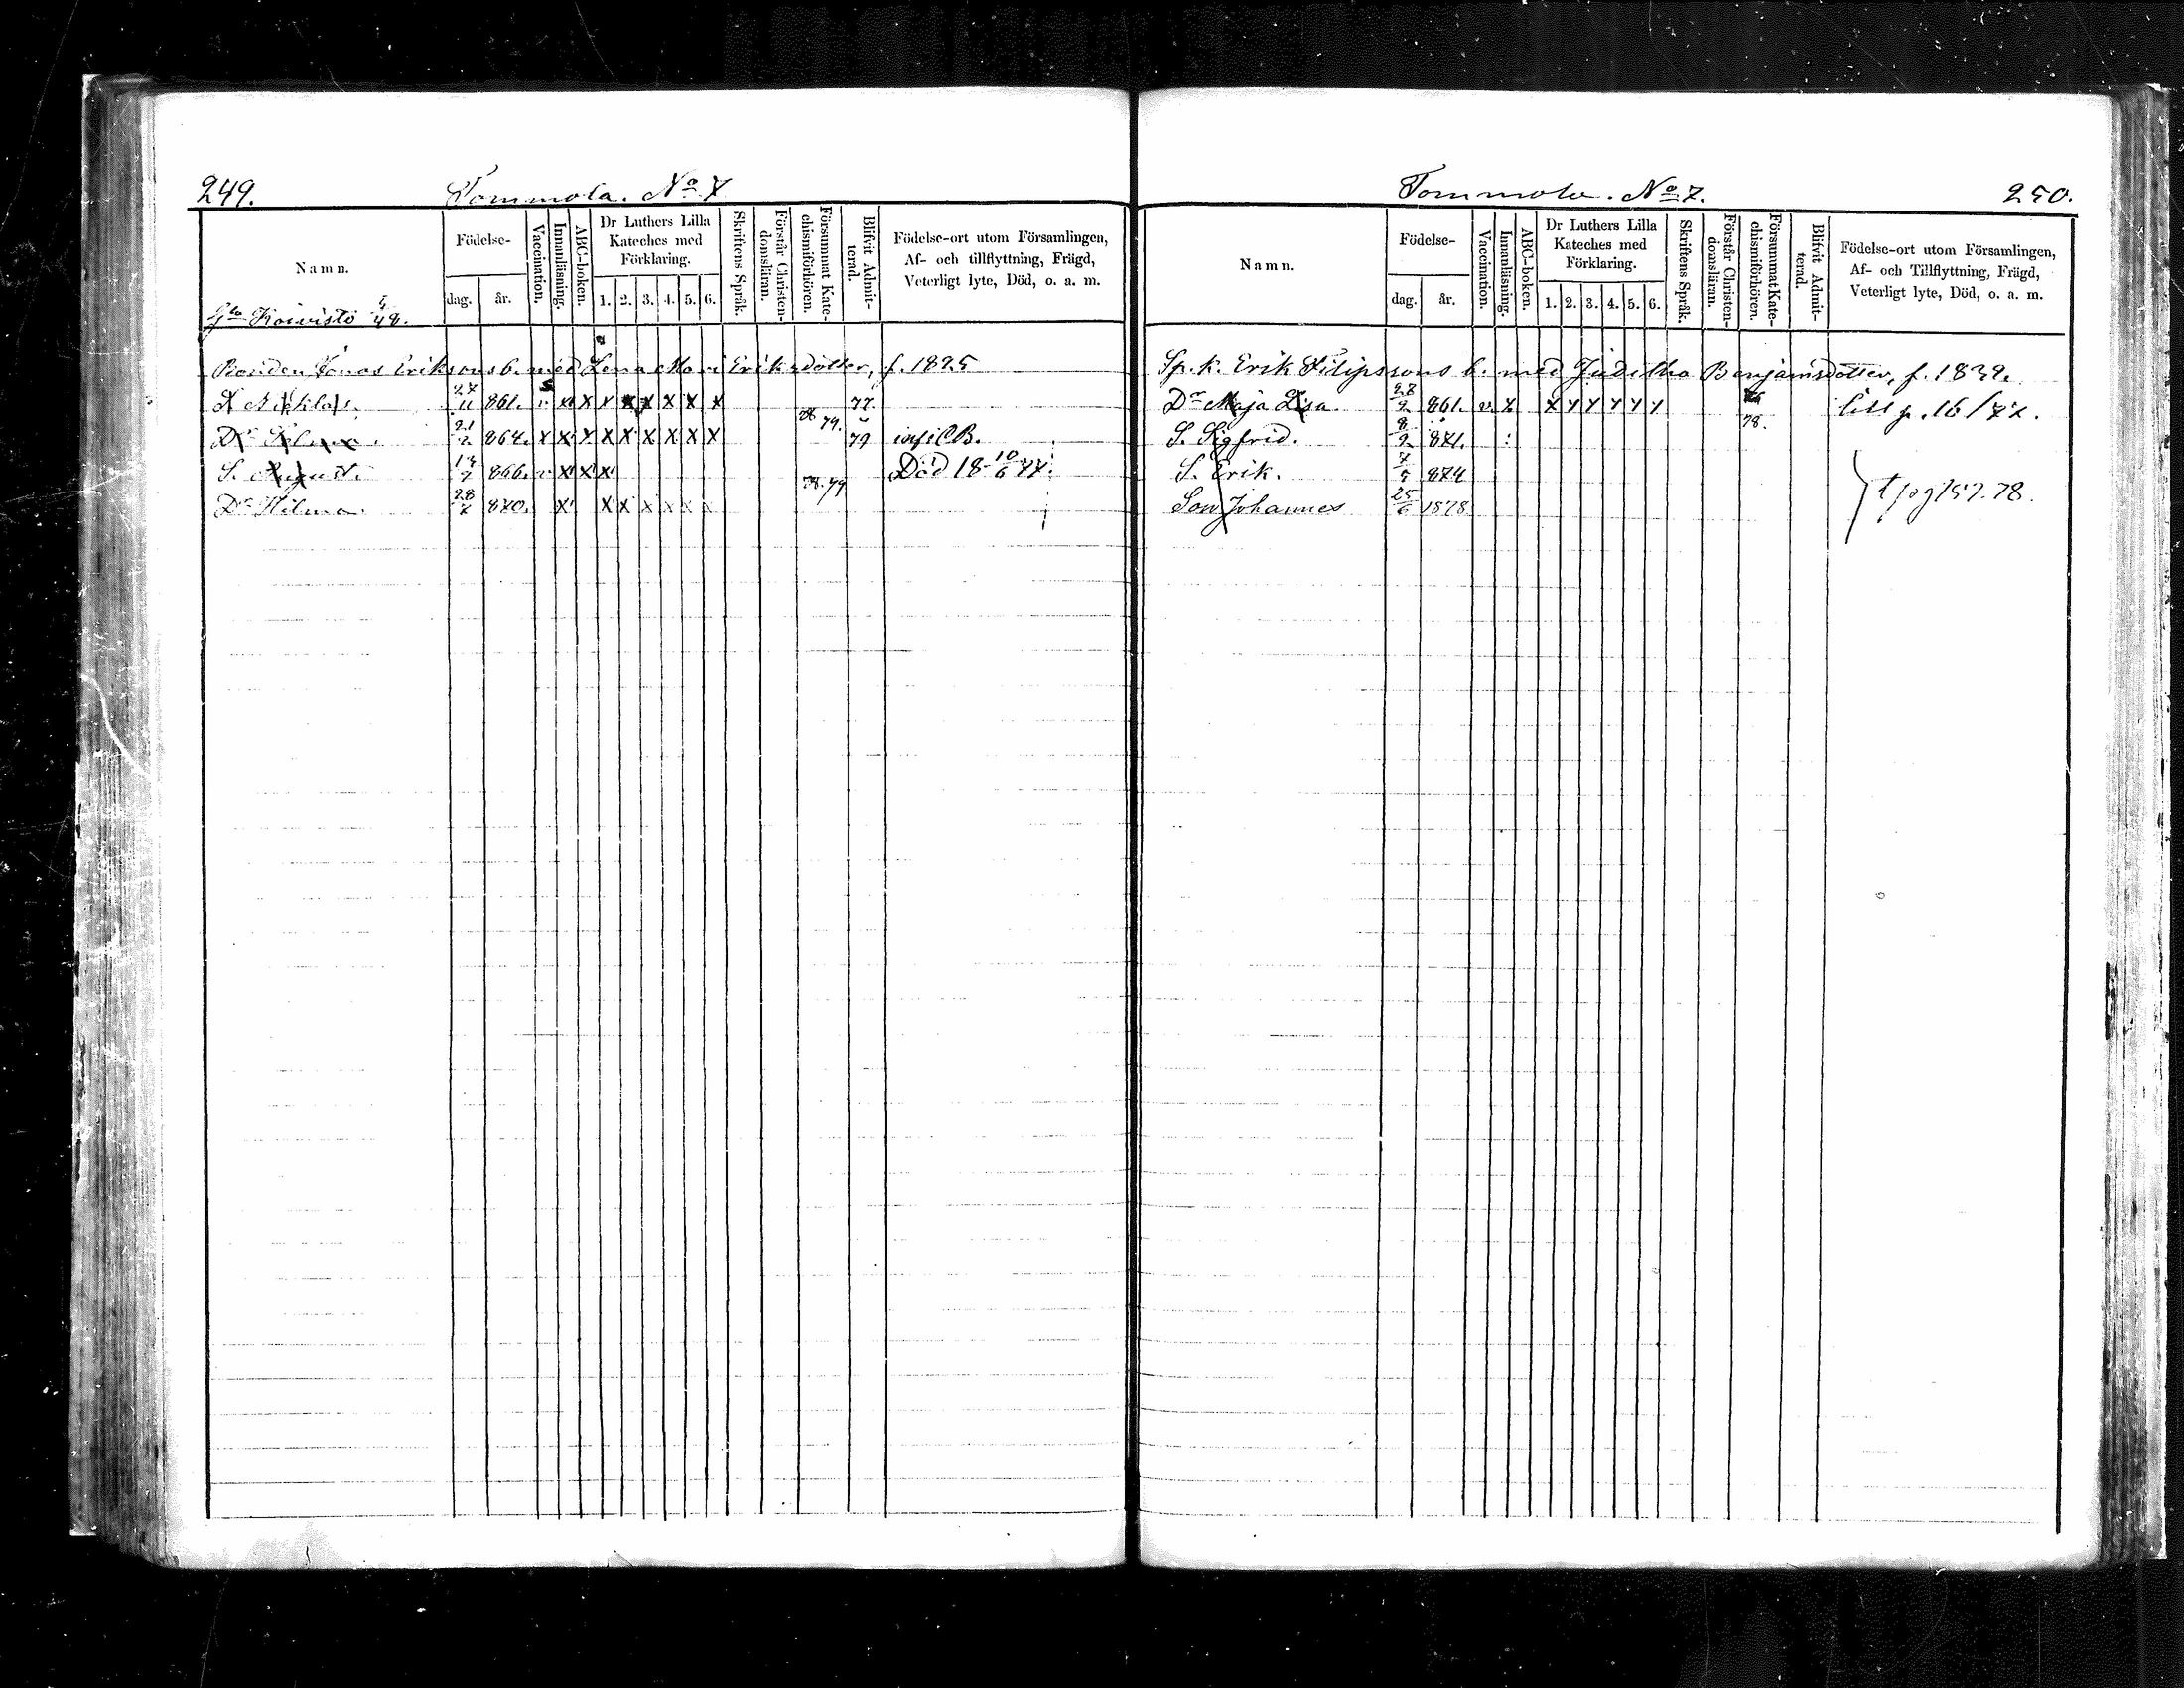 249. Tommola. No 7
Namn. Födelse- dag. år. Vaccination. Innanläsning. ABC-boken. Dr Luthers Lilla Kateches med Förklaring. 1. 2. 3. 4. 5. 6. Skriftens Språk. Förstår Christendomsläran. Försummat Katechismiförhören. Blifvit Admitterad. Födelse-ort utom Församlingen, Af- och tillflyttning, Frägd, Veterligt lyte, Död, o. a. m.
Koivisto
Bonden Jonas Erikssons b. med Lena Mari Eriksdotter, f. 1825
Nicklas. 27/11 861. v x x x x x x x x 77.
Dr 21/2 864. x x x x x x x x x 78 79. 79
S. August. 866. v x x x Död 18 10/6 77.
Dr Hilma. 28/7 870. x x x x x x x 78. 79
Tommola. No 7. 250.
Namn. Födelse- dag. år. Vaccination. Innanläsning. ABC-boken. Dr Luthers Lilla Kateches med Förklaring. 1. 2. 3. 4. 5. 6. Skriftens Språk. Förstår Christendomsläran. Försummat Katechismiförhören. Blifvit Admitterad. Födelse-ort utom Församlingen, Af- och Tillflyttning, Frägd, Veterligt lyte, Död, o. a. m.
Sp. k. Erik Filipssons b. med Juditha Benjamsdotter, f. 1839.
Dr Maja Lisa. 28/2 861. v. x x y y y y y 78. till p. 16/77.
S. Sigfrid. 8/2 871.
S. Erik. 7/5 874
Son Johannes 25/6 1878